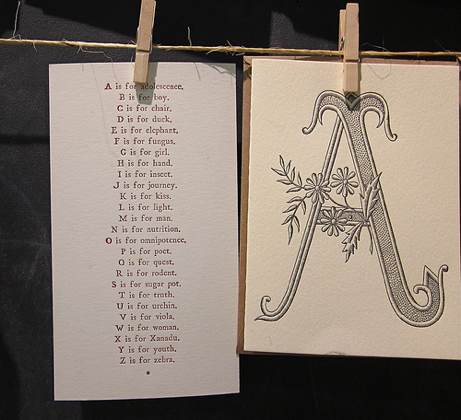 A is for adolescence,
B is for boy,
C is for chair,
D is for duck,
E is for elephant,
F is for fungus,
G is for girl,
H is for hand,
I is for insect,
J is for journey,
K is for kiss,
L is for light,
M is for man,
N is for nutrition,
O is for omnipotence,
P is for poet,
Q is for quest,
R is for rodent,
S is for sugar pot,
T is for truth,
U is for urchin,
V is for viola,
W is for woman,
X is for Xanadu,
Y is for youth,
Z is for zebra.
A